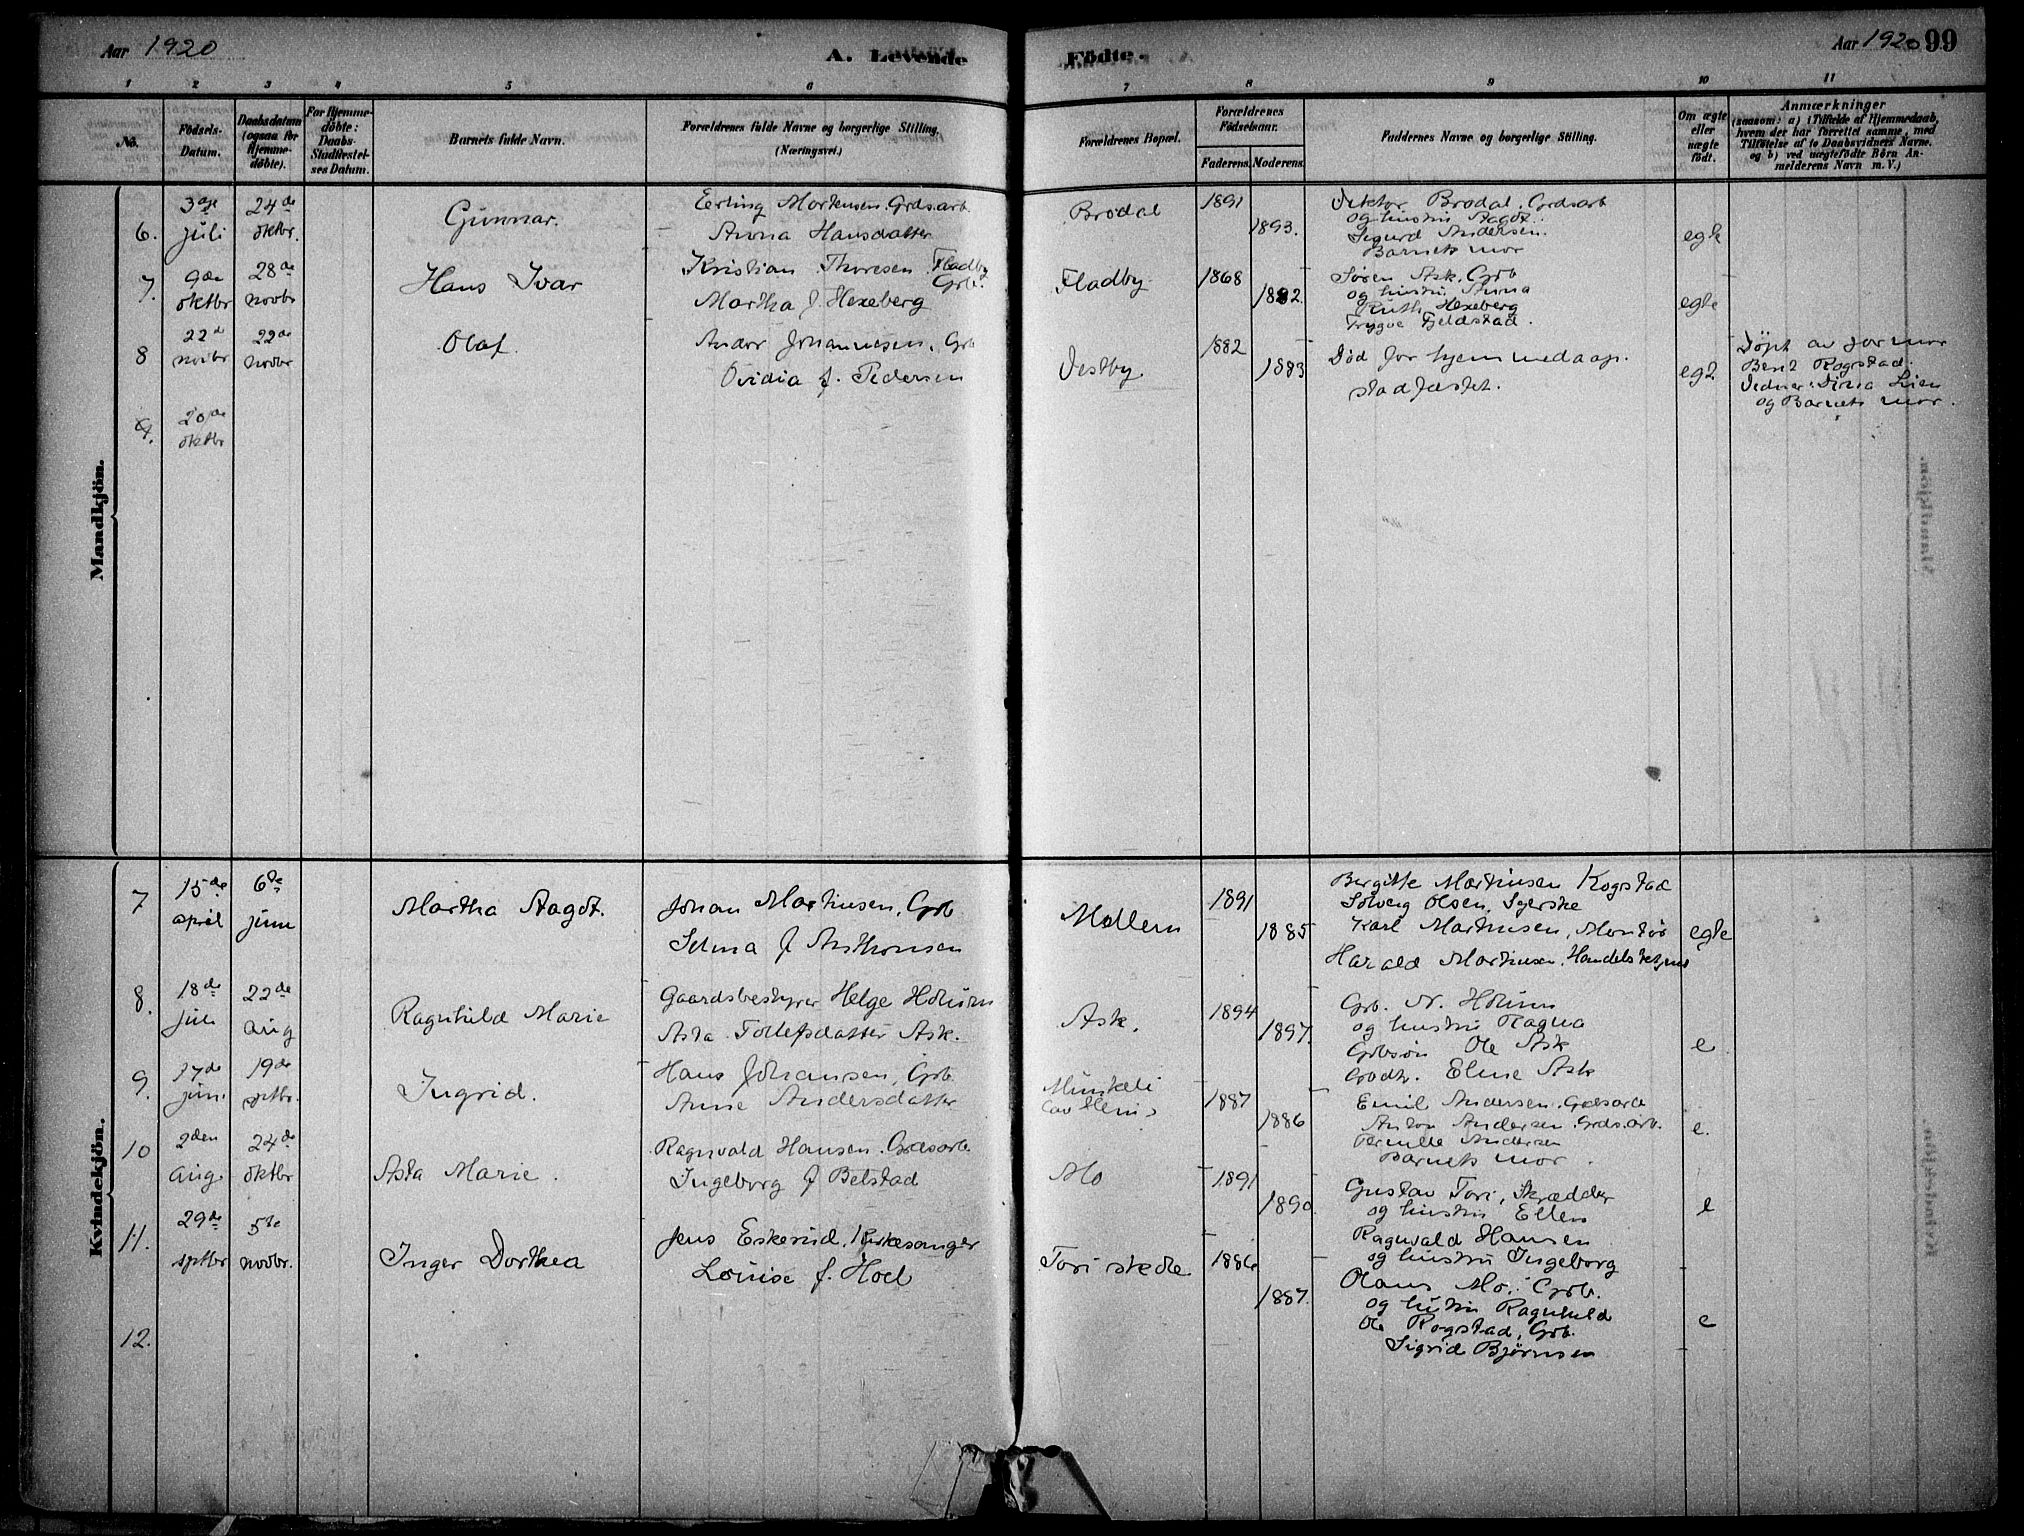 Aar 1920
A. Levende
Födte.
Aar 1920 99
1 2 3 4 5 6 7 8 9 10 11
No.
Födsels-
Datum.
Daabsdatum
(ogsaa for
Hjemme-
döbte).
For Hjemme-
döbte:
Daabs-
Stadfæstel-
ses Datum.
Barnets fulde Navn.
Forældrenes fulde Navne og borgerlige Stilling.
(Næringsvei.)
Forældrenes Bopæl.
Forældrenes
Födselsaar.
Faderens. Moderens.
Faddernes Navne og borgerlige Stilling.
Om ægte
eller
uægte
födt.
Anmærkninger
(saasom: a) i Tilfælde af Hjemmedaab,
hvem der har forrettet samme, med
Tilföielse af to Daabsvidners Navne.
og b) ved uægtefödte Börn An-
melderens Navn m. V.)
Mandkjön.
6. 3dje juli
24de oktbr.
Gunnar.
Erling Mortensen. Grdsarb.
Anna Hansdatter
Brodal
1891
1893.
Viktor Brodal. Grdsarb
og hustru Aagot.
Sigurd Andersen.
Barnets mor
egte
7. 9de oktbr
28de novbr
Hans Ivar
Kristian Thoresen Fladby
Grb.
Martha f. Hexeberg
Fladby
1868
1882.
Søren Ask, Grb
og hustru Anna
Ruth Hexeberg
Trygve Fjeldstad.
egte
8 22d novbr
22de novbr
Olaf
Andor Johannesen. Grb
Ovidia f. Pedersen
Vestby
1882
1883
Død før hjemmedaap.
stadfæstet.
egte
Døpt av jormor
Berit Rogstad.
Vidner: Dina Lien
og Barnets mor.
9. 20de oktbr
Kvindekjön.
7 15de april
6te juni
Martha Aagot.
Johan Martinsen, Grb
Selma f Anthonsen
Mellem
1891
1885
Bergitte Martinsen Rogstad
Solveig Olsen, Syerske
Karl Martinsen, Montør
Harald Martinsen, Handelsbetjent
egte
8. 18de juli
22de aug
Ragnhild Marie
Gaardsbestyrer Helge Holum
Asta Tollefsdatter Ask.
Ask.
1894
1897.
Grb. N. Holum
og hustru Ragna
Grbsøn Ole Ask
Grbdtr. Eline Ask
e
9. 17de juni
19de sptbr.
Ingrid.
Hans Johansen, Grb
Anne Andersdatter
1887
1886
Emil Andersen. Grdsarb
Anton Andersen. Grdsarb.
Pernille Andersen
Barnets mor.
e.
10 2den aug.
24de oktbr
Asta Marie.
Ragnvald Hansen. Grdsarb.
Ingeborg f Belstad
Mo
1891
1890.
Gustav Tori, Skrædder
og hustru Ellen
Ragnvald Hansen
og hustru Ingeborg
e
11. 29de sptbr
5te novbr.
Inger Dorthea
Jens Eskerud, Kirkesanger
Louise f. Hoel
Tori skole
1886
1887.
Olaus Mo, Grb.
og hustru Ragnhild
Ole Rogstad, Grb.
Sigrid Bjørnsen
e
12.